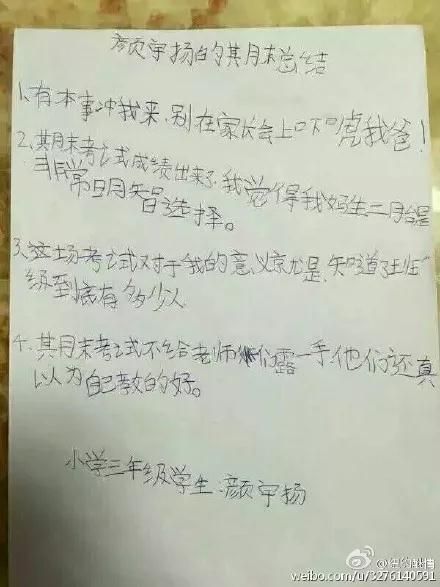 颜宇扬的其月末总结
1、有本事冲我来,别在家长会上吓唬我爸!
2、其月末考试成绩出来了,我觉得我妈生二月台是
非常明智选择。
3、这场考试对于我的意义就是,知道了班
级到底有多少人
4、其月末考试不给老师们露一手,他们还真
以为自己教的好。
小学三年级学生:颜宇扬
weibo.com/u/3276140591